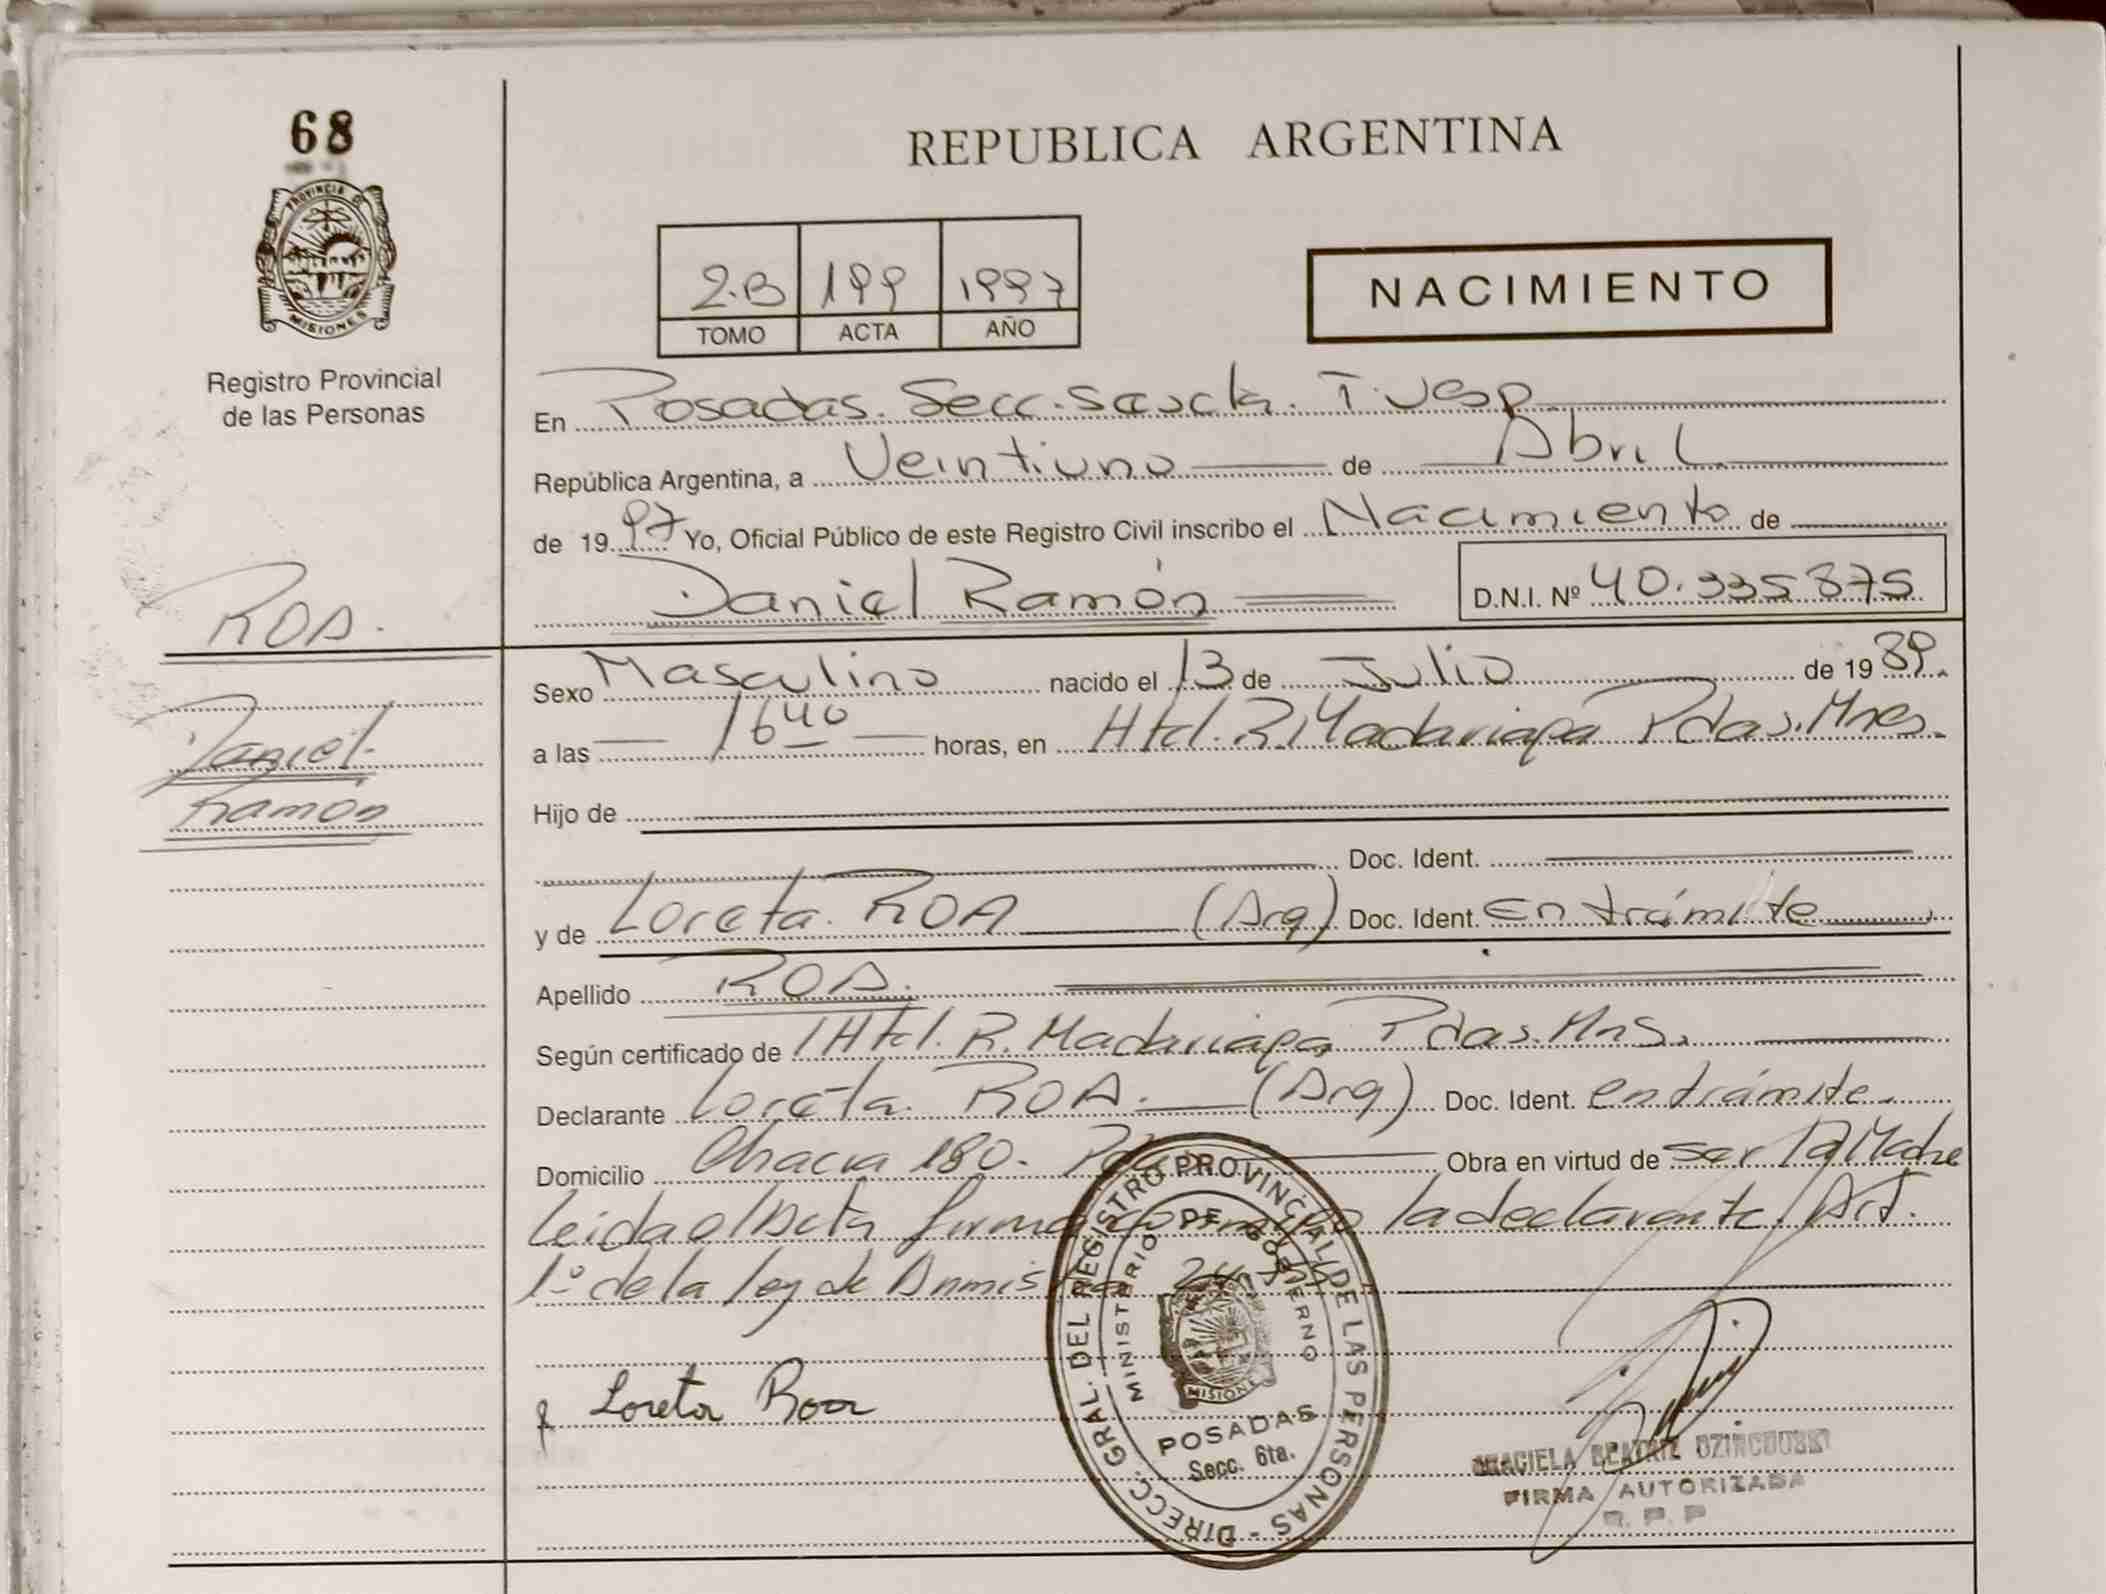 68
PROVINCIA DE
MISIONES
Registro Provincial
de las Personas
ROA.
Daniel
Ramón
REPUBLICA ARGENTINA
2.B 199 1997
TOMO ACTA AÑO
NACIMIENTO
En Posadas. Secc. Sexta.
República Argentina, a Veintiuno de Abril
de 1997 Yo, Oficial Público de este Registro Civil inscribo el Nacimiento de
Daniel Ramón D.N.I. Nº 40.335875
Sexo Masculino nacido el 13 de Julio de 1989.
a las 1640 horas, en Htal. R. Madariaga Pdas. Mnes.
Hijo de
Doc. Ident.
y de Loreta ROA (Arg) Doc. Ident. en trámite
Apellido ROA.
Según certificado de Htal. R. Madariaga Pdas. Mns.
Declarante Loreta ROA. (Arg) Doc. Ident. en trámite.
Domicilio Chacra 180. Obra en virtud de ser la Madre
Leida el Acta firma la declarante. Art.
1º de la ley de
Loreta Roa
DIRECC. GRAL. DEL REGISTRO PROVINCIAL DE LAS PERSONAS
MINISTERIO DE GOBIERNO
MISIONES
POSADAS
Secc. 6ta.
GRACIELA BEATRIZ
FIRMA AUTORIZADA
R. P. P